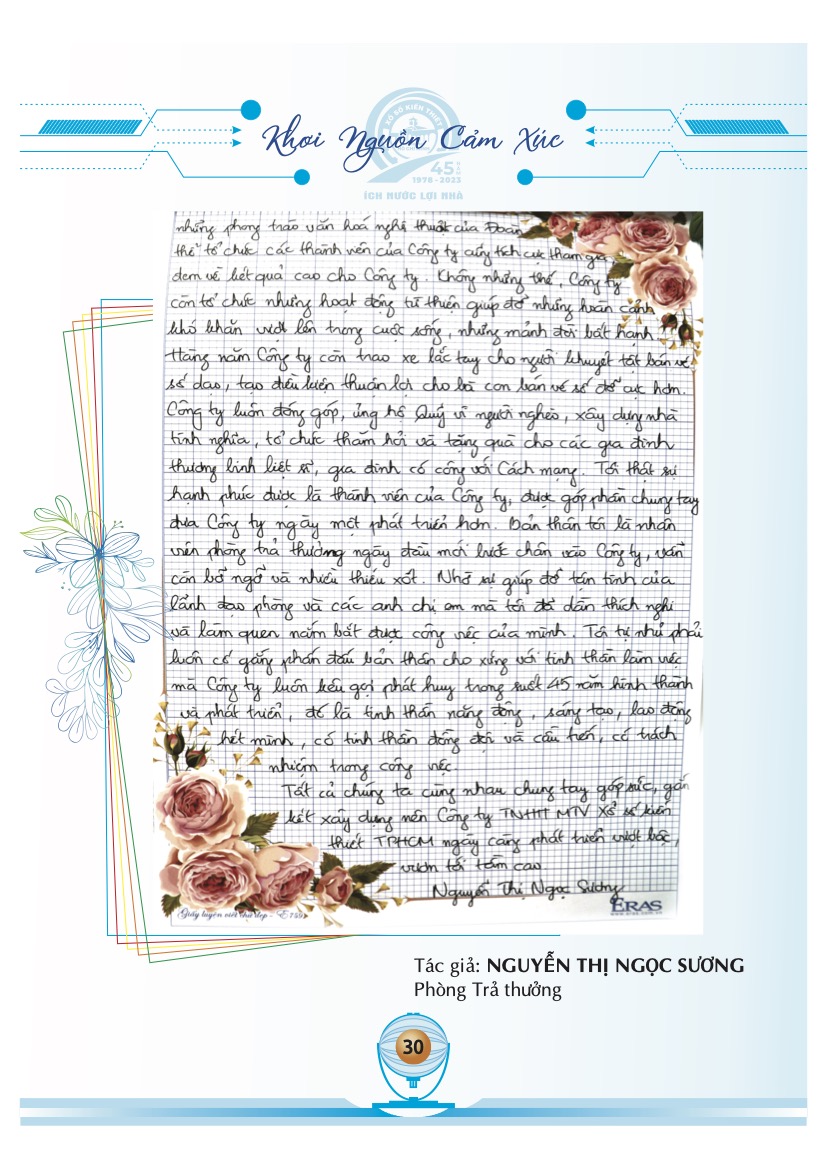 XỔ SỐ KIẾN THIẾT
Khơi Nguồn Cảm Xúc
45 NĂM
1978 - 2023
ÍCH NƯỚC LỢI NHÀ
những phong trào văn hoá nghệ thuật của Đoàn
thể tổ chức các thành viên của Công ty cũng tích cực tham gia
đem về kết quả cao cho Công ty. Không những thế, Công ty
còn tổ chức những hoạt động từ thiện giúp đỡ những hoàn cảnh
khó khăn vượt lên trong cuộc sống, những mảnh đời bất hạnh.
Hằng năm Công ty còn trao xe lắc tay cho người khuyết tật bán vé
số dạo, tạo điều kiện thuận lợi cho bà con bán vé số đỡ cực hơn.
Công ty luôn đóng góp, ủng hộ Quỹ vì người nghèo, xây dựng nhà
tình nghĩa, tổ chức thăm hỏi và tặng quà cho các gia đình
thương binh liệt sĩ, gia đình có công với Cách mạng. Tôi thật sự
hạnh phúc được là thành viên của Công ty, được góp phần chung tay
đưa Công ty ngày một phát triển hơn. Bản thân tôi là nhân
viên phòng trả thưởng ngày đầu mới bước chân vào Công ty, vẫn
còn bỡ ngỡ và nhiều thiếu xót. Nhờ sự giúp đỡ tận tình của
lãnh đạo phòng và các anh chị em mà tôi đã dần thích nghi
và làm quen nắm bắt được công việc của mình. Tôi tự nhủ phải
luôn cố gắng phấn đấu bản thân cho xứng với tinh thần làm việc
mà Công ty luôn kêu gọi phát huy trong suốt 45 năm hình thành
và phát triển, đó là tinh thần năng động, sáng tạo, lao động
hết mình, có tinh thần đồng đội và cầu tiến, có trách
nhiệm trong công việc.
Tất cả chúng ta cùng nhau chung tay góp sức, gắn
kết xây dựng nên Công ty TNHH MTV Xổ số kiến
thiết TPHCM ngày càng phát triển vượt bậc,
vươn tới tầm cao
Nguyễn Thị Ngọc Sương
Giấy luyện viết chữ đẹp - E759
ERAS
www.eras.com.vn
Tác giả: NGUYỄN THỊ NGỌC SƯƠNG
Phòng Trả thưởng
30